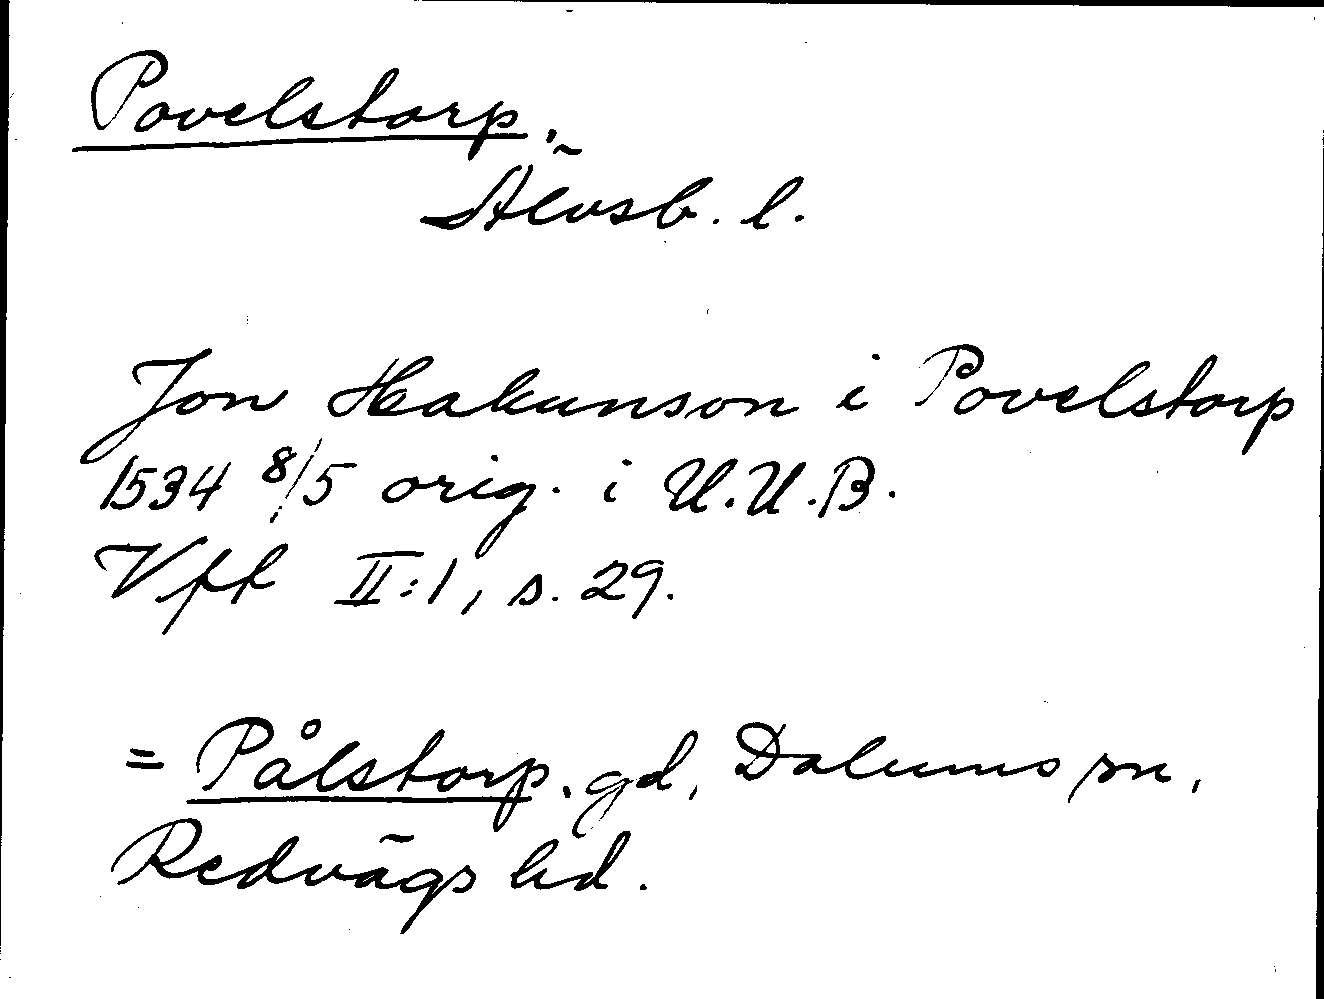 Povelstorp.
Älvsb. l.
Jon Hakunson i Povelstorp
1534 8/5 orig. i U.U.B.
Vff II:1, s. 29.
= Pålstorp, gd, Dalums sn,
Redvägs hd.